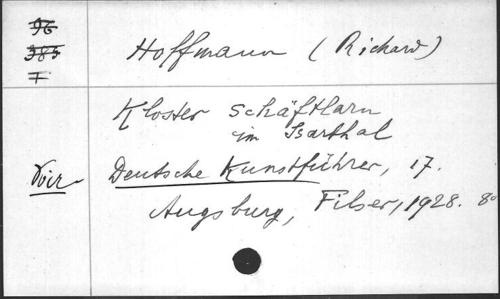 96
385
I
Hoffmann (Richard)
Kloster Schäftlarn
im Isarthal
Voir Deutsche Kunstführer, 17.
Augsburg, Filser, 1928. 8°